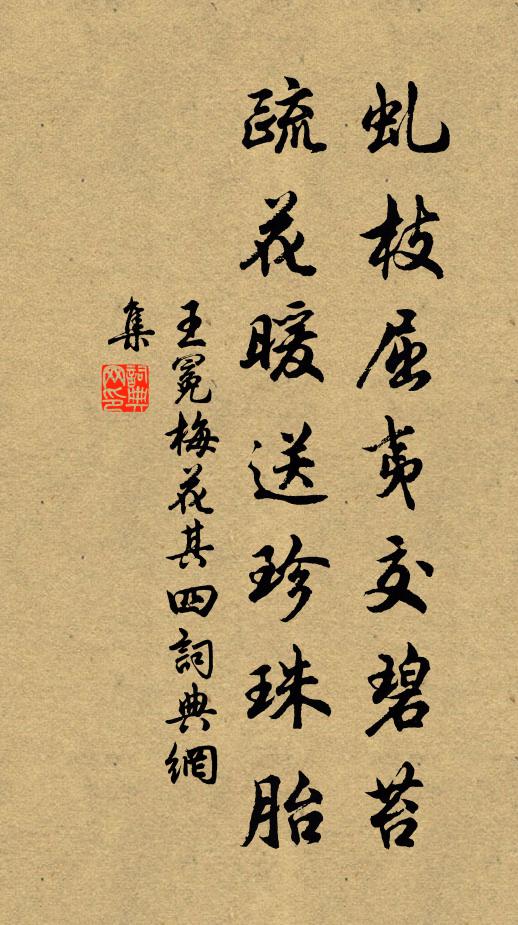 虬枝屈夷交碧苔
疏花暖送珍珠胎
王冕梅花其四詞典網
集
詞典網印